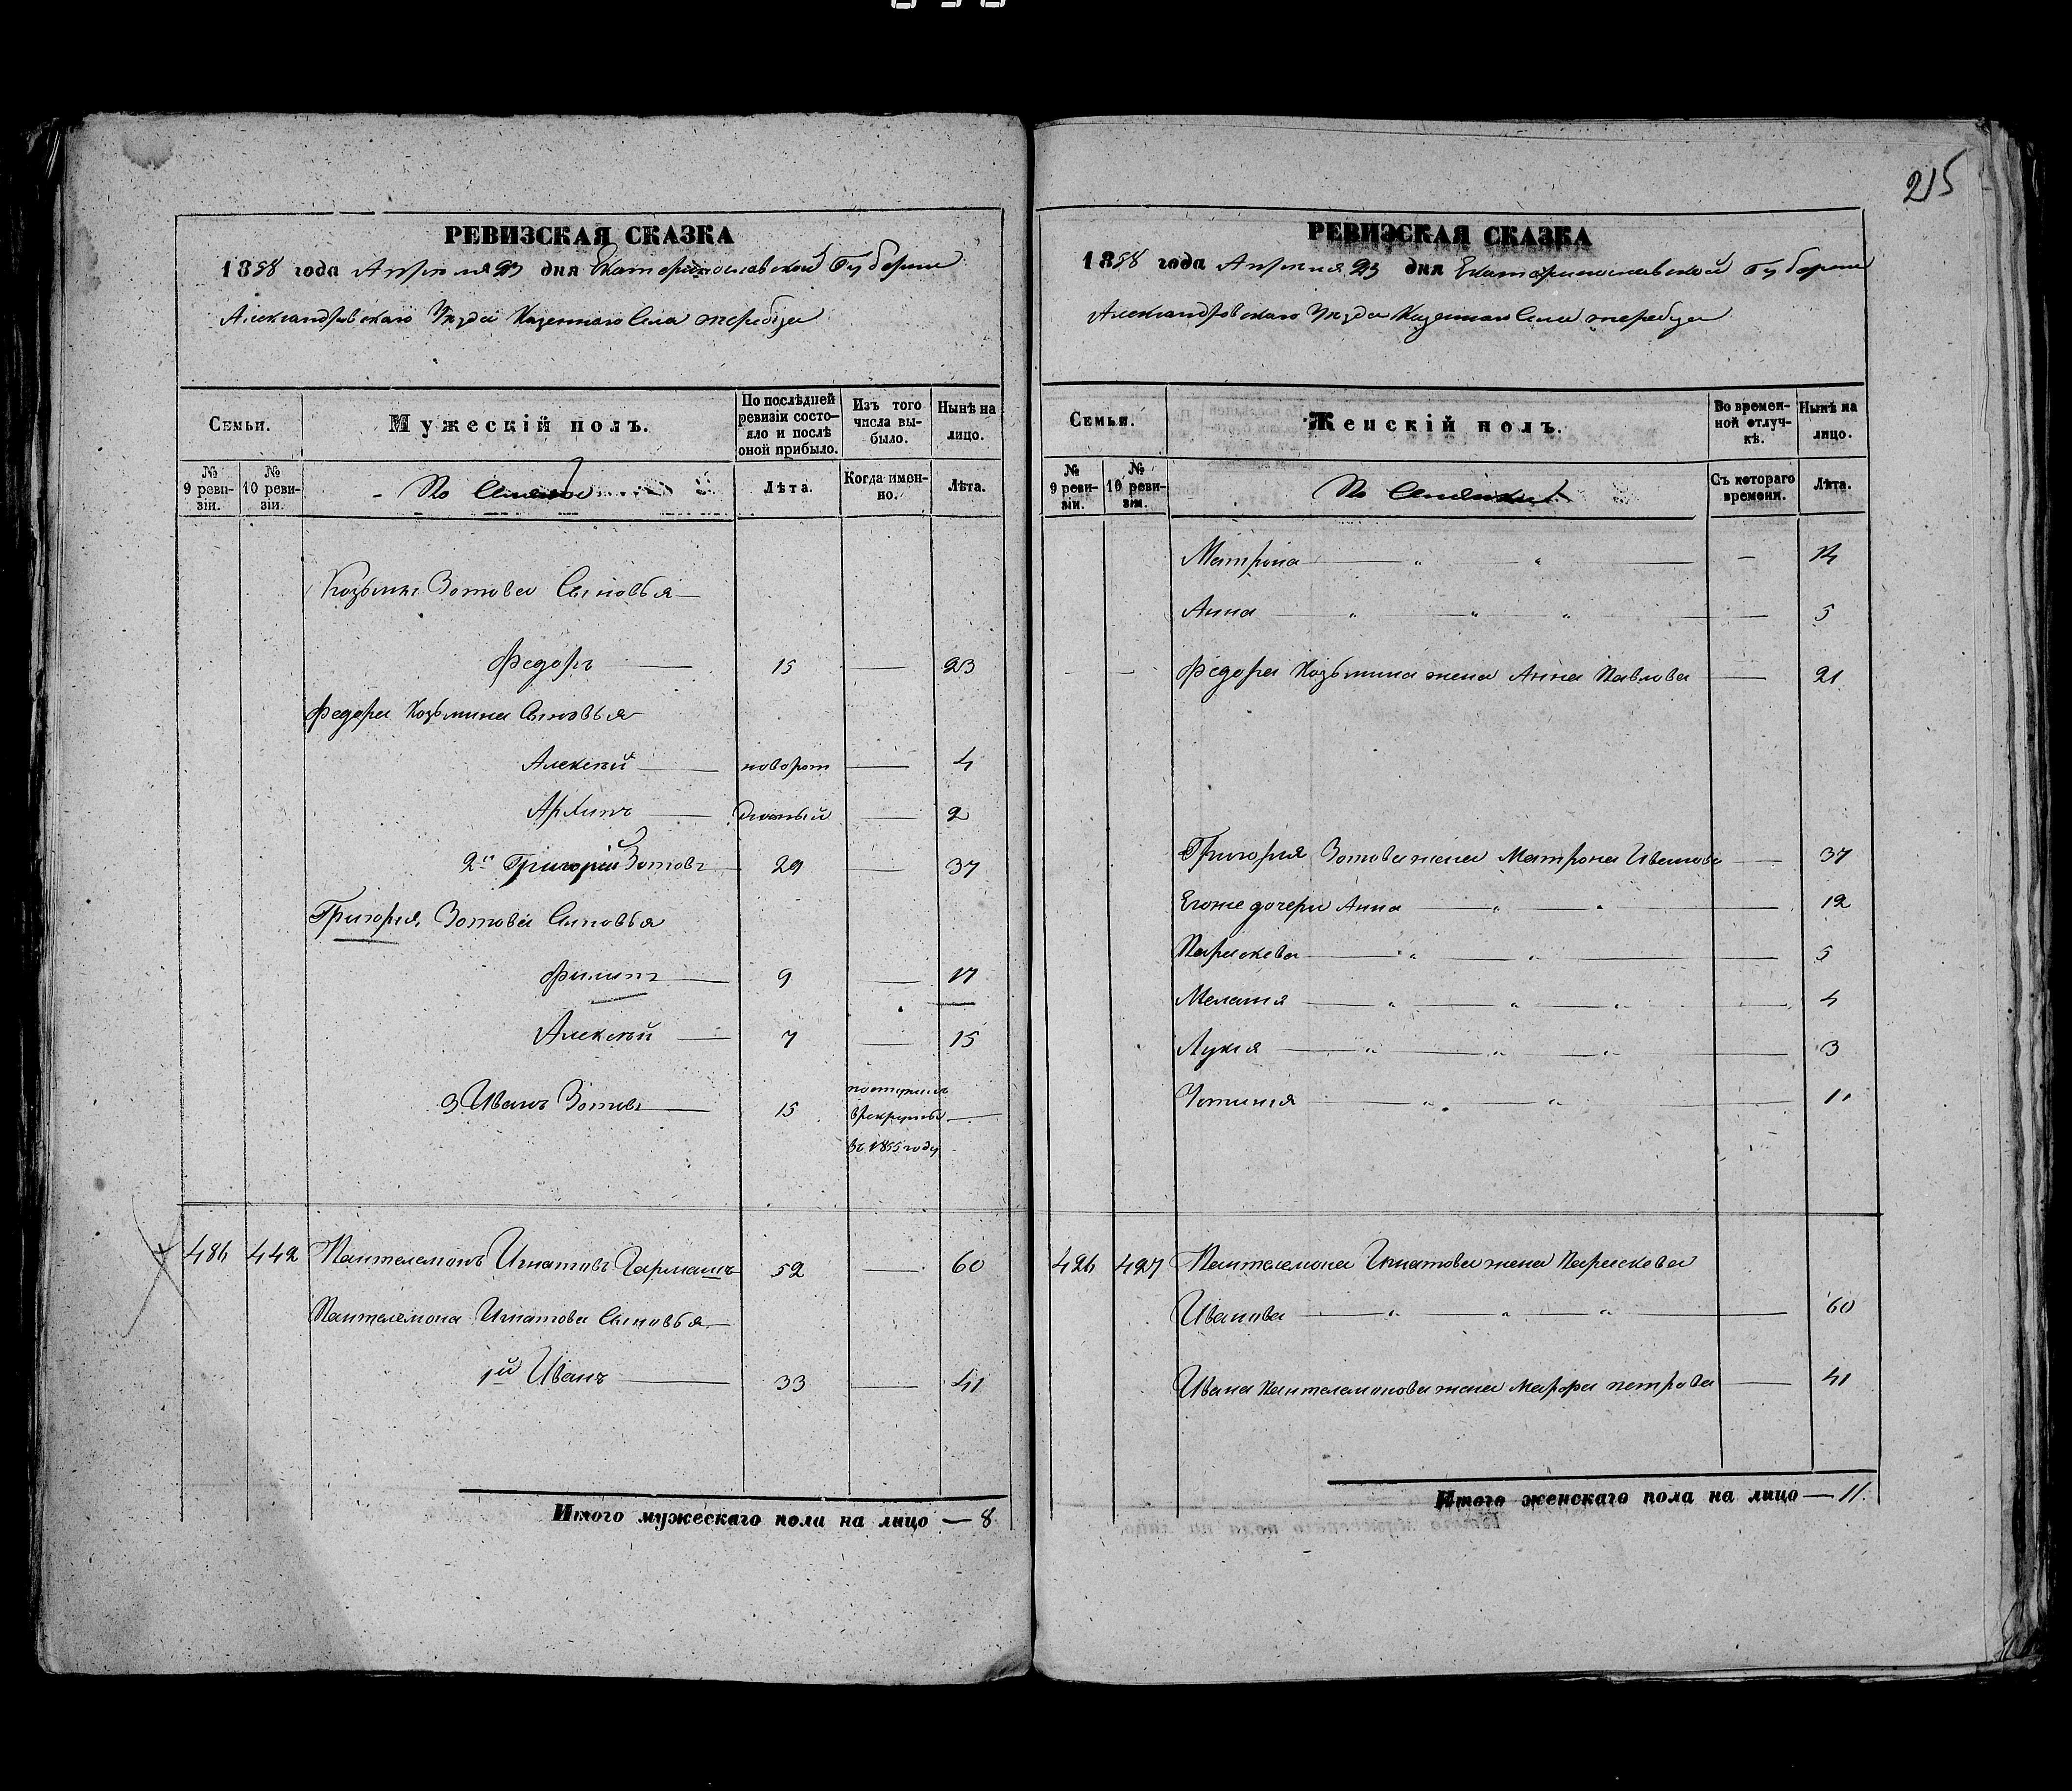 215
РЕВИЗСКАЯ СКАЗКА
1858 года Апреля 23 дня Екатеринославской Губернии
Александровскаго Уезда Казеннаго Села жеребца
Семьи.
Мужескій полъ.
По послѣдней ревизіи состояло и послѣ оной прибыло.
Изъ того числа выбыло.
Нынѣ на лицо.
№ 9 ревизіи.
№ 10 ревизіи.
Лѣта.
Когда именно.
Лѣта.
Козьмы Зотова Сыновья
Федоръ — 15 — 23
Федора Козьмина Сыновья
Алексѣй — новорож — 4
Архипъ — денный — 2
2й Григорій Зотовъ — 29 — 37
Григорія Зотова Сыновья
Филипъ — 9 — 17
Алексѣй — 7 — 15
3 Иванъ Зотовъ — 15 поступилъ
врекруты —
въ 1855 году
486 442 Пантелемонъ Игнатовъ Гармашъ 52 — 60
Пантелемона Игнатова Сыновья —
1й Иванъ — 33 — 41
Итого мужескаго пола на лицо — 8
РЕВИЗСКАЯ СКАЗКА
1858 года Апреля 23 дня Екатеринославской Губернии
Александровскаго Уезда Казеннаго Села жеребца
Семьи.
Женскій полъ.
Во временной отлучкѣ.
Нынѣ на лицо.
№ 9 ревизіи.
№ 10 ревизіи.
Съ котораго времени.
Лѣта.
Матрона — " — " — — 14
Анна — " — " — " — — 5
Федора Козьмина жена Анна Павлова — 21
Григорія Зотова жена Матрона Иванова — 37
Егоже дочери Анна — " — " — — 12
Параскева — " — " — — 5
Мелания — " — " — " — — 4
Лукия — " — " — " — — 3
— " — " — — 1
486 427 Пантелемона Игнатова жена Параскева
Иванова — " — " — " — — 60
Ивана Пантелемонова жена Марфа петрова — 41
Итого женскаго пола на лицо — 11.